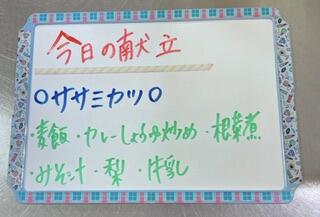 今日の献立
〇ササミカツ〇
・麦飯・カレーしょうゆ炒め・相菜煮
・みそ汁・梨・牛乳